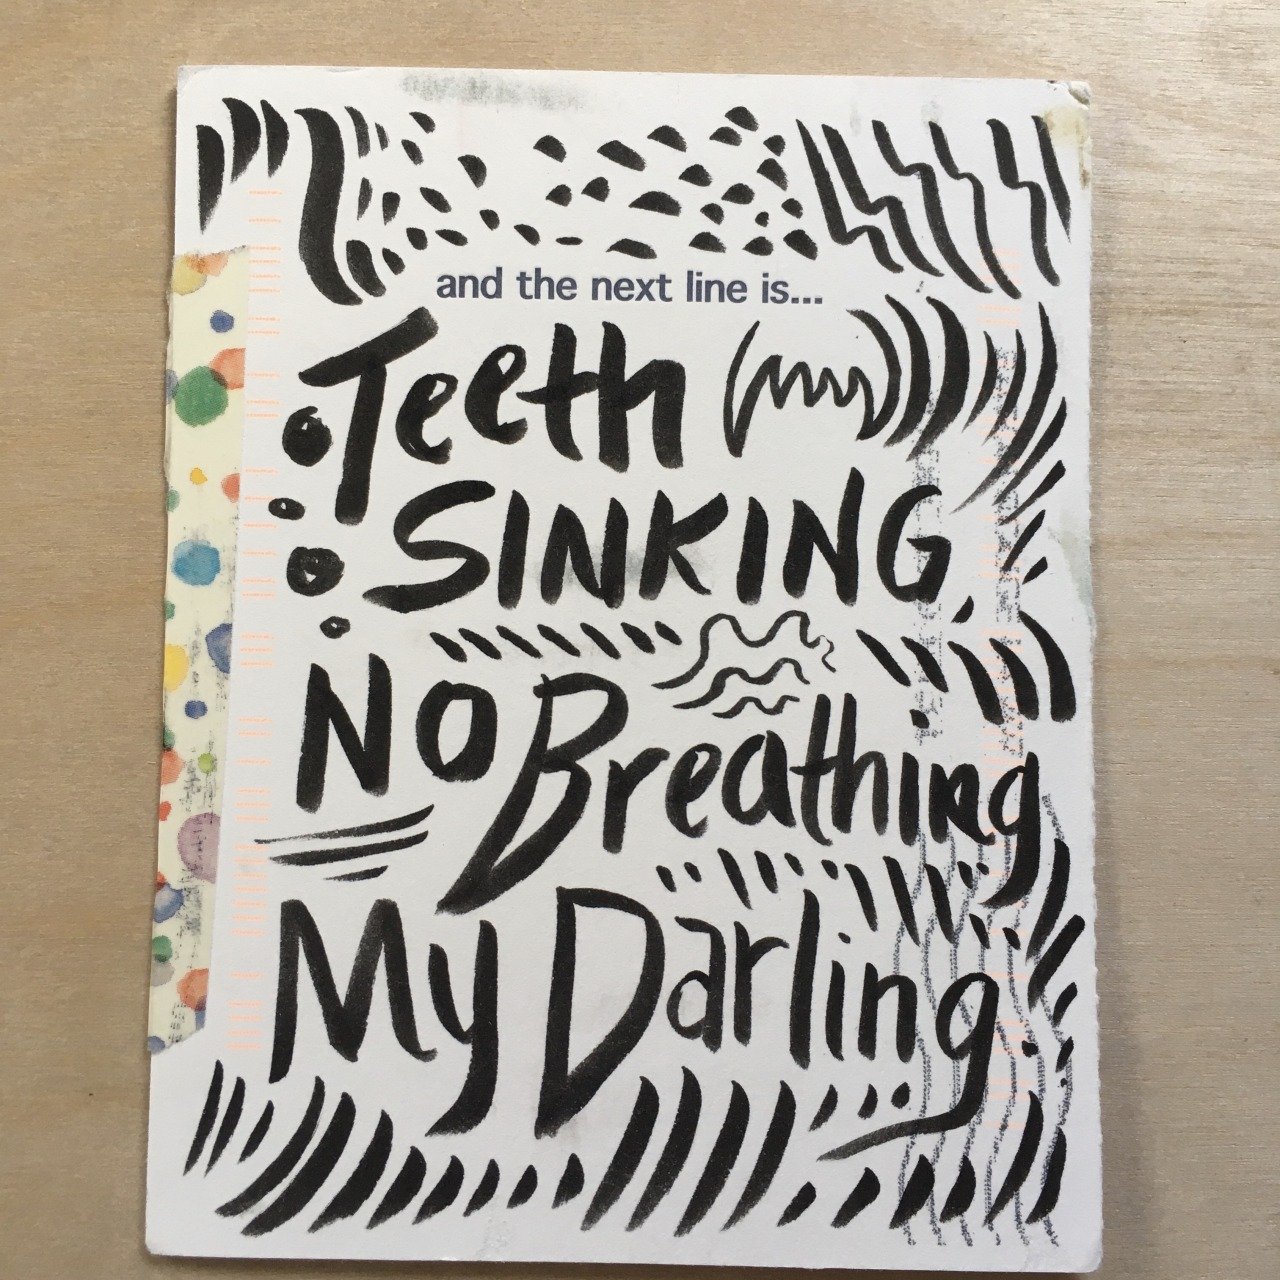 and the next line is...
Teeth
SINKING,
NO Breathing
My Darling.